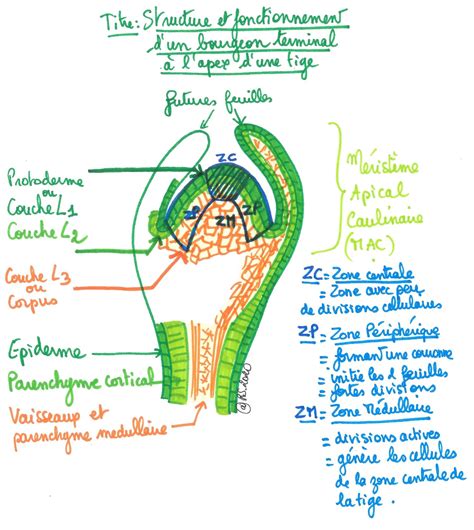 Titre: Structure et fonctionnement
d'un bourgeon terminal
à l'apex d'une tige
futures feuilles
ZC
ZP
ZM
ZP
Protoderme
ou
Couche L1
Couche L2
Couche L3
ou
Corpus
Epiderme
Parenchyme cortical
Vaisseaux et
parenchyme medullaire
Méristème
Apical
Caulinaire
(MAC)
ZC = Zone centrale
= Zone avec peu
de divisions cellulaires
ZP = Zone Périphérique
= formant une couronne
= initie les feuilles
= fortes divisions
ZM = Zone Médullaire
= divisions actives
= génère les cellules
de la zone centrale de
la tige.